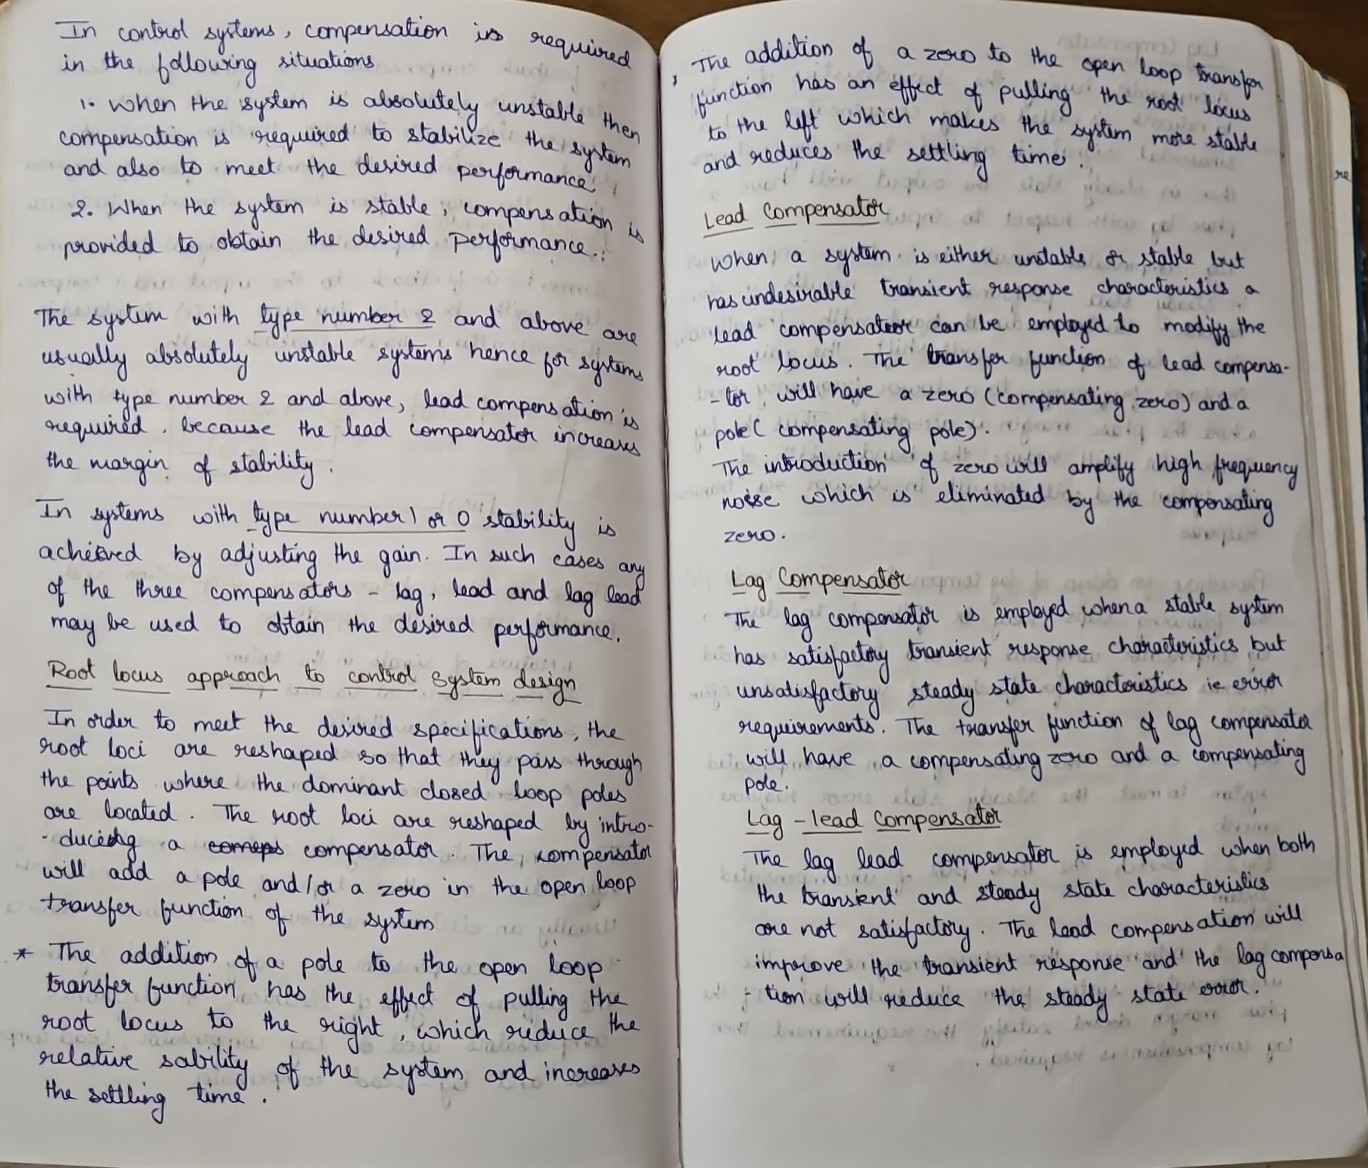 In control systems, compensation is required
in the following situations
1. When the system is absolutely unstable then
compensation is required to stabilize the system
and also to meet the desired performance.
2. When the system is stable, compensation is
provided to obtain the desired performance.
The system with type number 2 and above are
usually absolutely unstable systems hence for systems
with type number 2 and above, lead compensation is
required. because the lead compensator increases
the margin of stability.
In systems with type number 1 or 0 stability is
achieved by adjusting the gain. In such cases any
of the three compensators - lag, lead and lag lead
may be used to obtain the desired performance.
Root locus approach to control system design
In order to meet the desired specifications, the
root loci are reshaped so that they pass through
the points where the dominant closed loop poles
are located. The root loci are reshaped by intro-
-ducing a comps compensator. The compensator
will add a pole and/or a zero in the open loop
transfer function of the system
* The addition of a pole to the open loop
transfer function has the effect of pulling the
root locus to the right, which reduce the
relative sability of the system and increases
the settling time.
The addition of a zero to the open loop transfer
function has an effect of pulling the root locus
to the left which makes the system more stable
and reduces the settling time.
Lead Compensator
When a system is either unstable or stable but
has undesirable transient response characteristics a
lead compensator can be employed to modify the
root locus. The transfer function of lead compensa-
-tor will have a zero (compensating zero) and a
pole ( compensating pole).
The introduction of zero will amplify high frequency
noise which is eliminated by the compensating
zero.
Lag Compensator
The lag compensator is employed when a stable system
has satisfactory transient response characteristics but
unsatisfactory steady state characteristics ie error
requirements. The transfer function of lag compensator
will have a compensating zero and a compensating
pole.
Lag - lead compensator
The lag lead compensator is employed when both
the transient and steady state characteristics
are not satisfactory. The lead compensation will
improve the transient response and the lag compensa
- tion will reduce the steady state error.
re